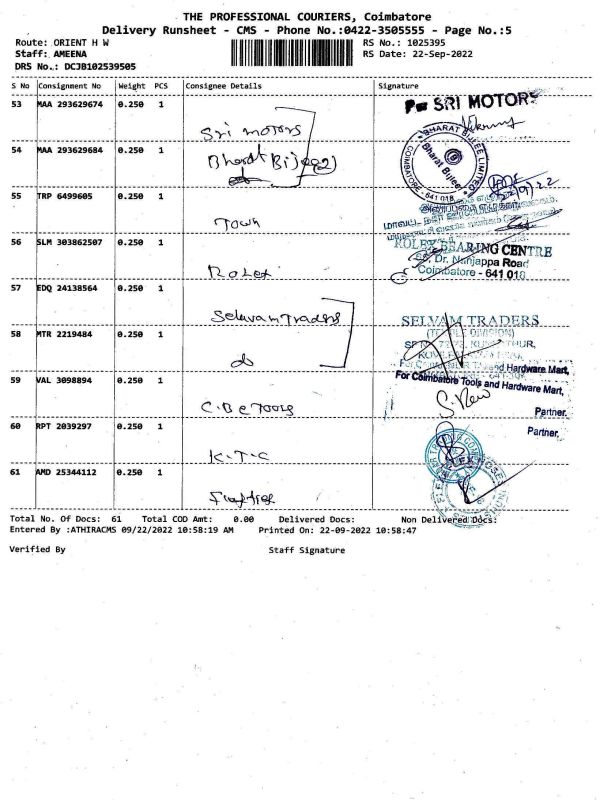 THE PROFESSIONAL COURIERS, Coimbatore
Delivery Runsheet - CMS - Phone No.:0422-3505555 - Page No.:5
Route: ORIENT H W
RS No.: 1025395
Staff: AMEENA
RS Date: 22-Sep-2022
DRS No.: DCJB102539505
S No Consignment No Weight PCS Consignee Details Signature
53 MAA 293629674 0.250 1 Sri motors SRI MOTORS
54 MAA 293629684 0.250 1 Bharat Bijee
BHARAT BIJLEE LIMITED
COIMBATORE - 641 018
Bharat Bijlee
55 TRP 6499605 0.250 1 Town
56 SLM 303862507 0.250 1 Rolex
ROLEX BEARING CENTRE
Dr. Nanjappa Road
Coimbatore - 641 018
57 EDQ 24138564 0.250 1 Selvam Traders
SELVAM TRADERS
58 MTR 2219484 0.250 1 do
59 VAL 3098894 0.250 1 C.B.E Tools
For Coimbatore Tools and Hardware Mart,
Partner.
60 RPT 2039297 0.250 1 K.T.C
Partner.
61 AMD 25344112 0.250 1
Total No. Of Docs: 61 Total COD Amt: 0.00 Delivered Docs: Non Delivered Docs:
Entered By :ATHIRACMS 09/22/2022 10:58:19 AM Printed On: 22-09-2022 10:58:47
Verified By Staff Signature